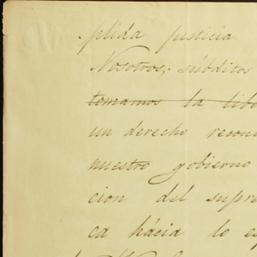 plida justicia
Nosotros; súbditos
tomamos la lib
un derecho recon
nuestro gobierno
cion del supre
ca hácia lo es